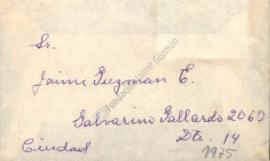 Sr.
Jaime Guzman E.
Galvarino Gallardo 2069
Dto. 14
Ciudad
1975
Fundación Jaime Guzmán